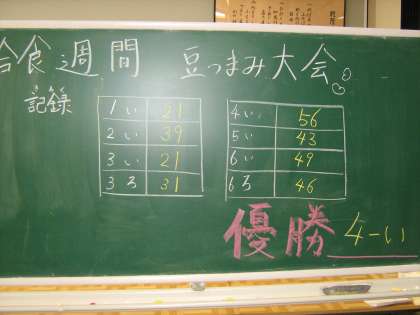 給食週間 豆つまみ大会
記録
1い 21
2い 39
3い 21
3ろ 31
4い 56
5い 43
6い 49
6ろ 46
優勝 4-い